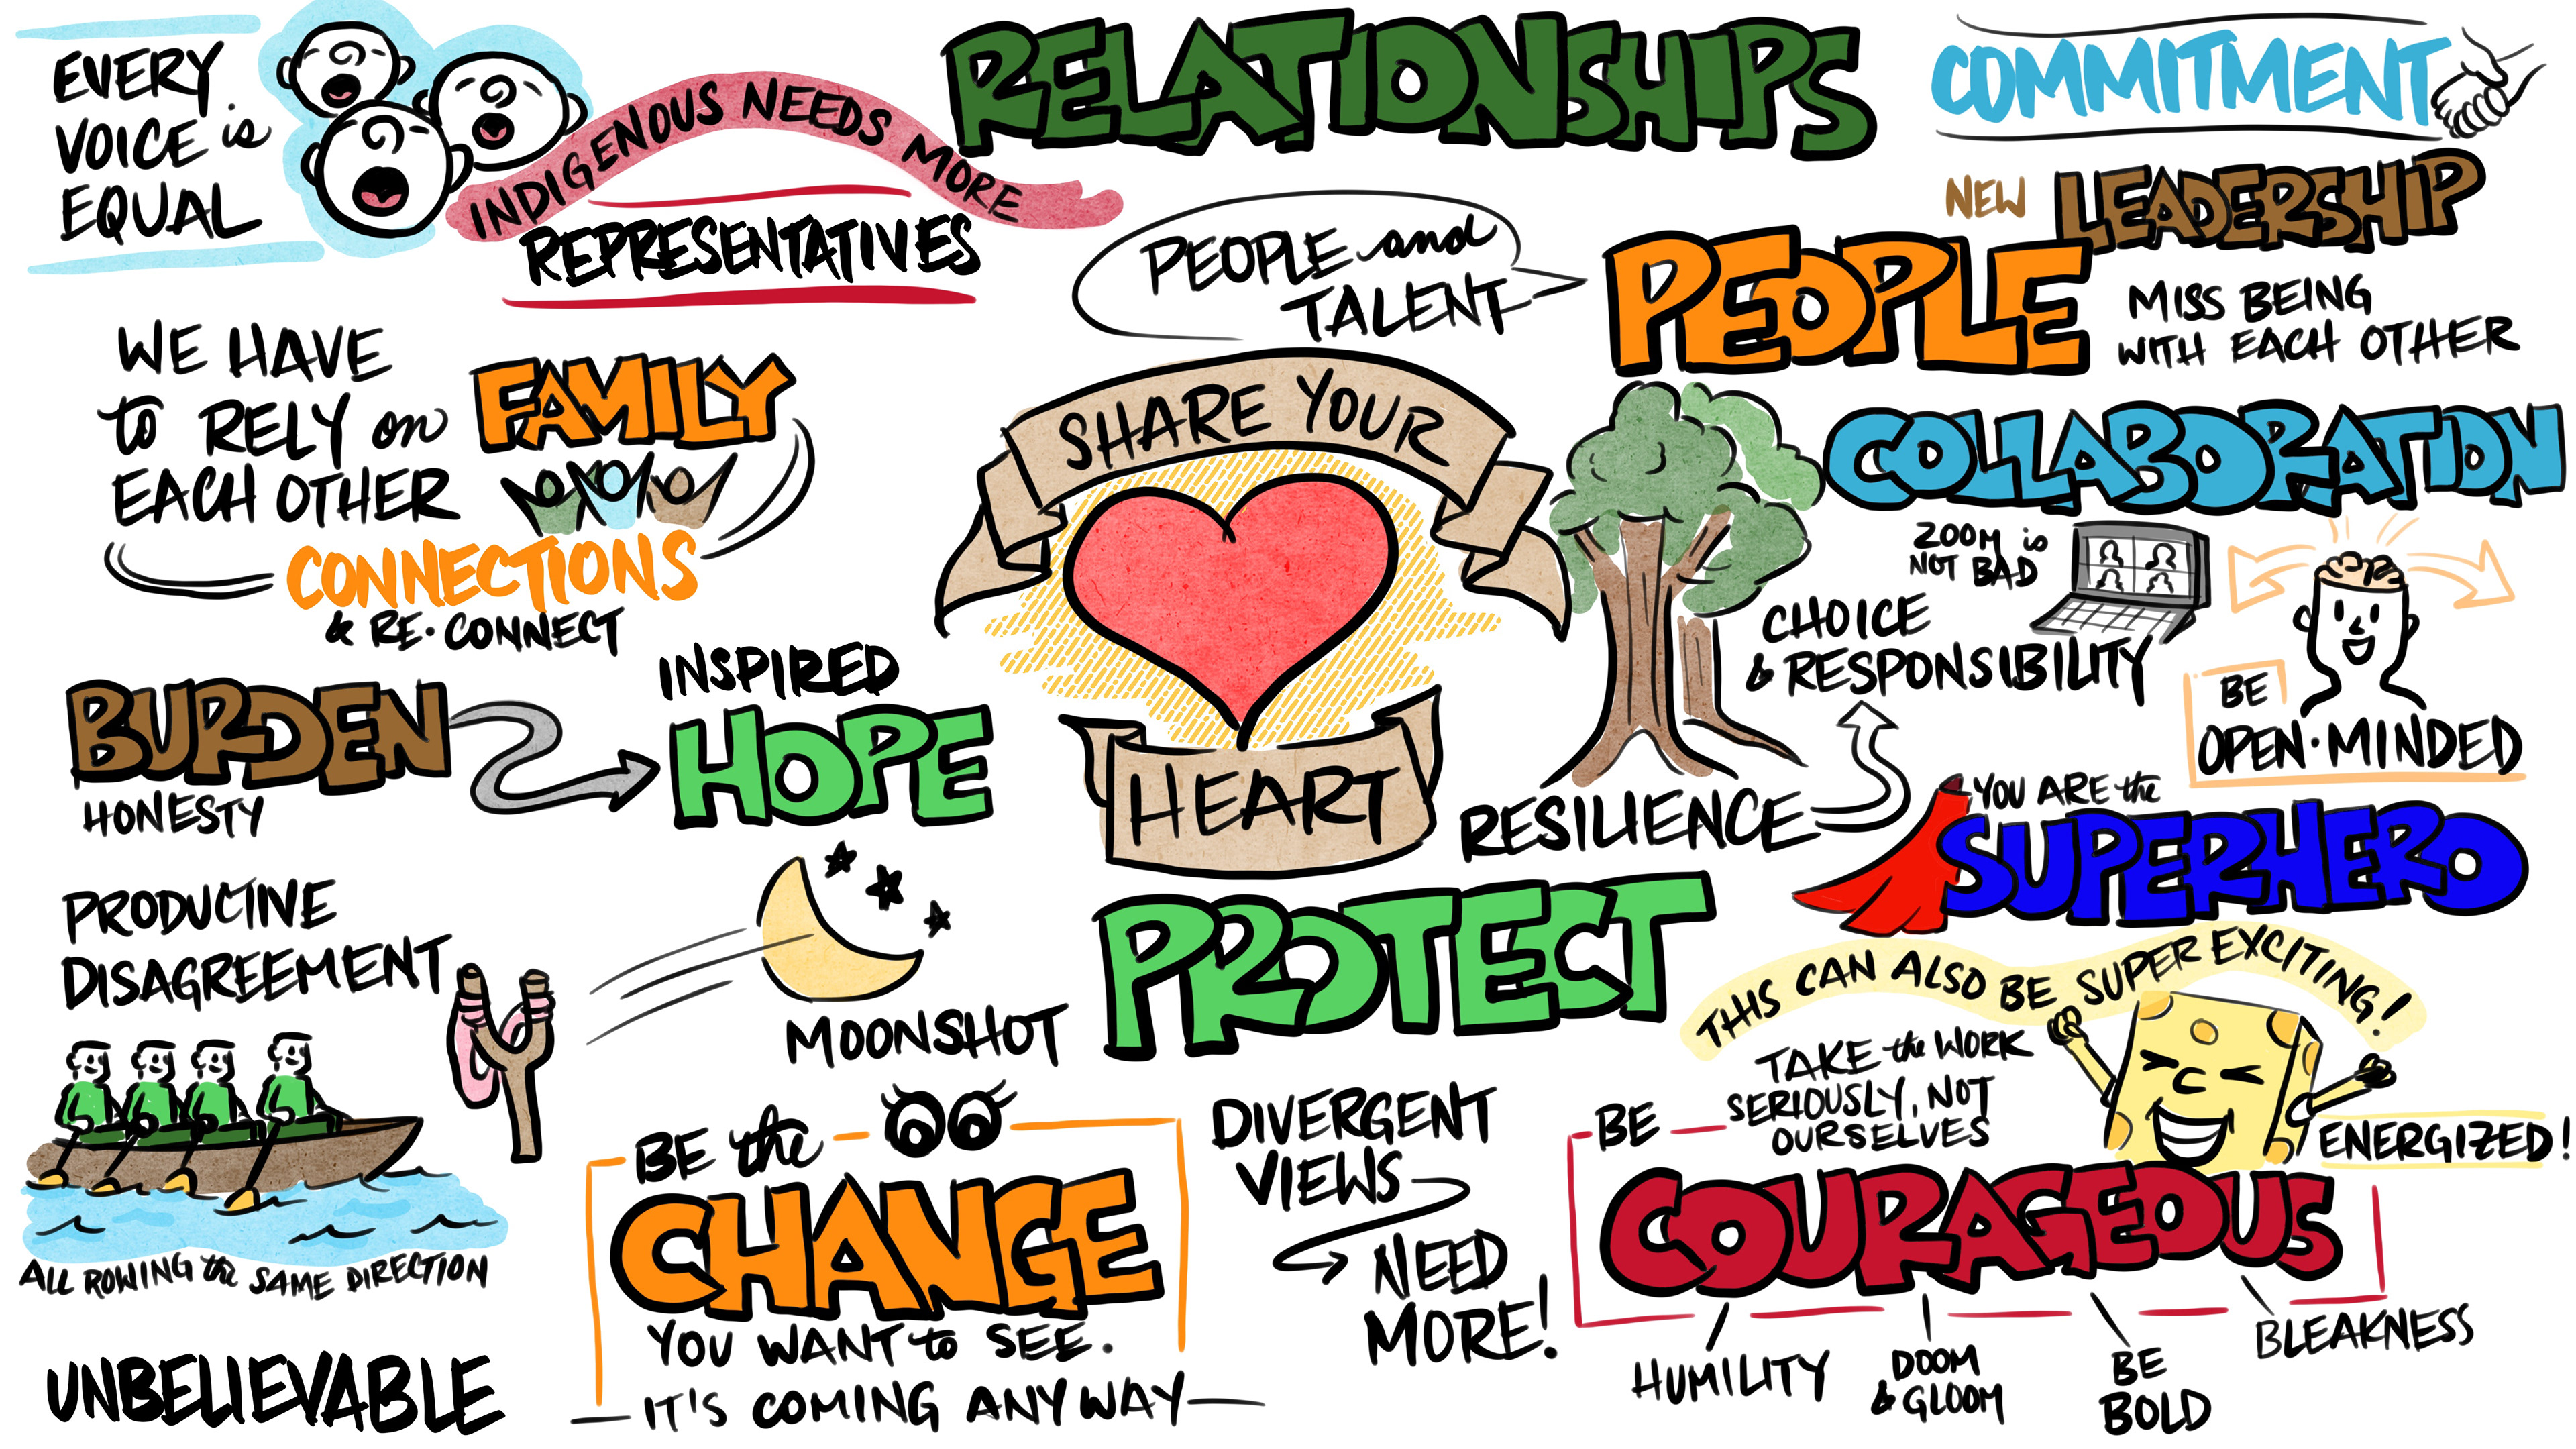 EVERY
VOICE is
EQUAL
INDIGENOUS NEEDS MORE
REPRESENTATIVES
RELATIONSHIPS
COMMITMENT
NEW LEADERSHIP
PEOPLE and
TALENT
PEOPLE
MISS BEING
WITH EACH OTHER
WE HAVE
to RELY on
EACH OTHER
FAMILY
CONNECTIONS
& RE·CONNECT
SHARE YOUR
HEART
COLLABORATION
ZOOM is
NOT BAD
CHOICE
& RESPONSIBILITY
BE
OPEN·MINDED
BURDEN
HONESTY
INSPIRED
HOPE
RESILIENCE
YOU ARE the
SUPERHERO
PRODUCTIVE
DISAGREEMENT
MOONSHOT
PROTECT
THS CAN ALSO BE SUPER EXCITING!
TAKE the WORK
SERIOUSLY, NOT
OURSELVES
ENERGIZED!
ALL ROWING the SAME DIRECTION
UNBELIEVABLE
BE the
CHANGE
YOU WANT to SEE.
IT'S COMING ANYWAY
DIVERGENT
VIEWS
NEED
MORE!
BE
COURAGEOUS
HUMILITY
DOOM
& GLOOM
BE
BOLD
BLEAKNESS